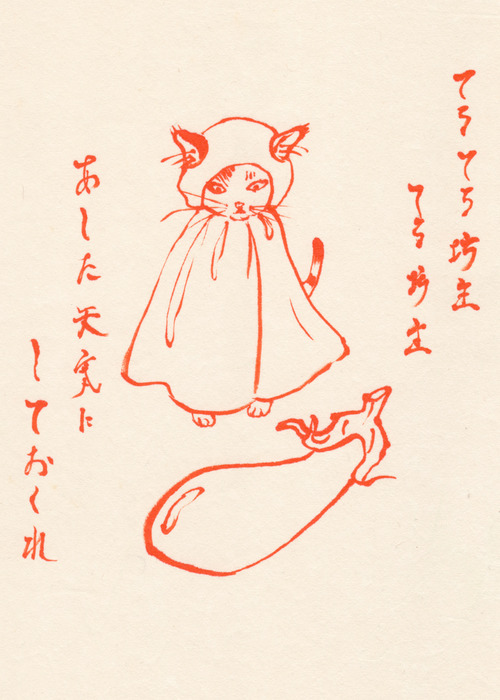 てるてる坊主
てる坊主
あした天気に
しておくれ